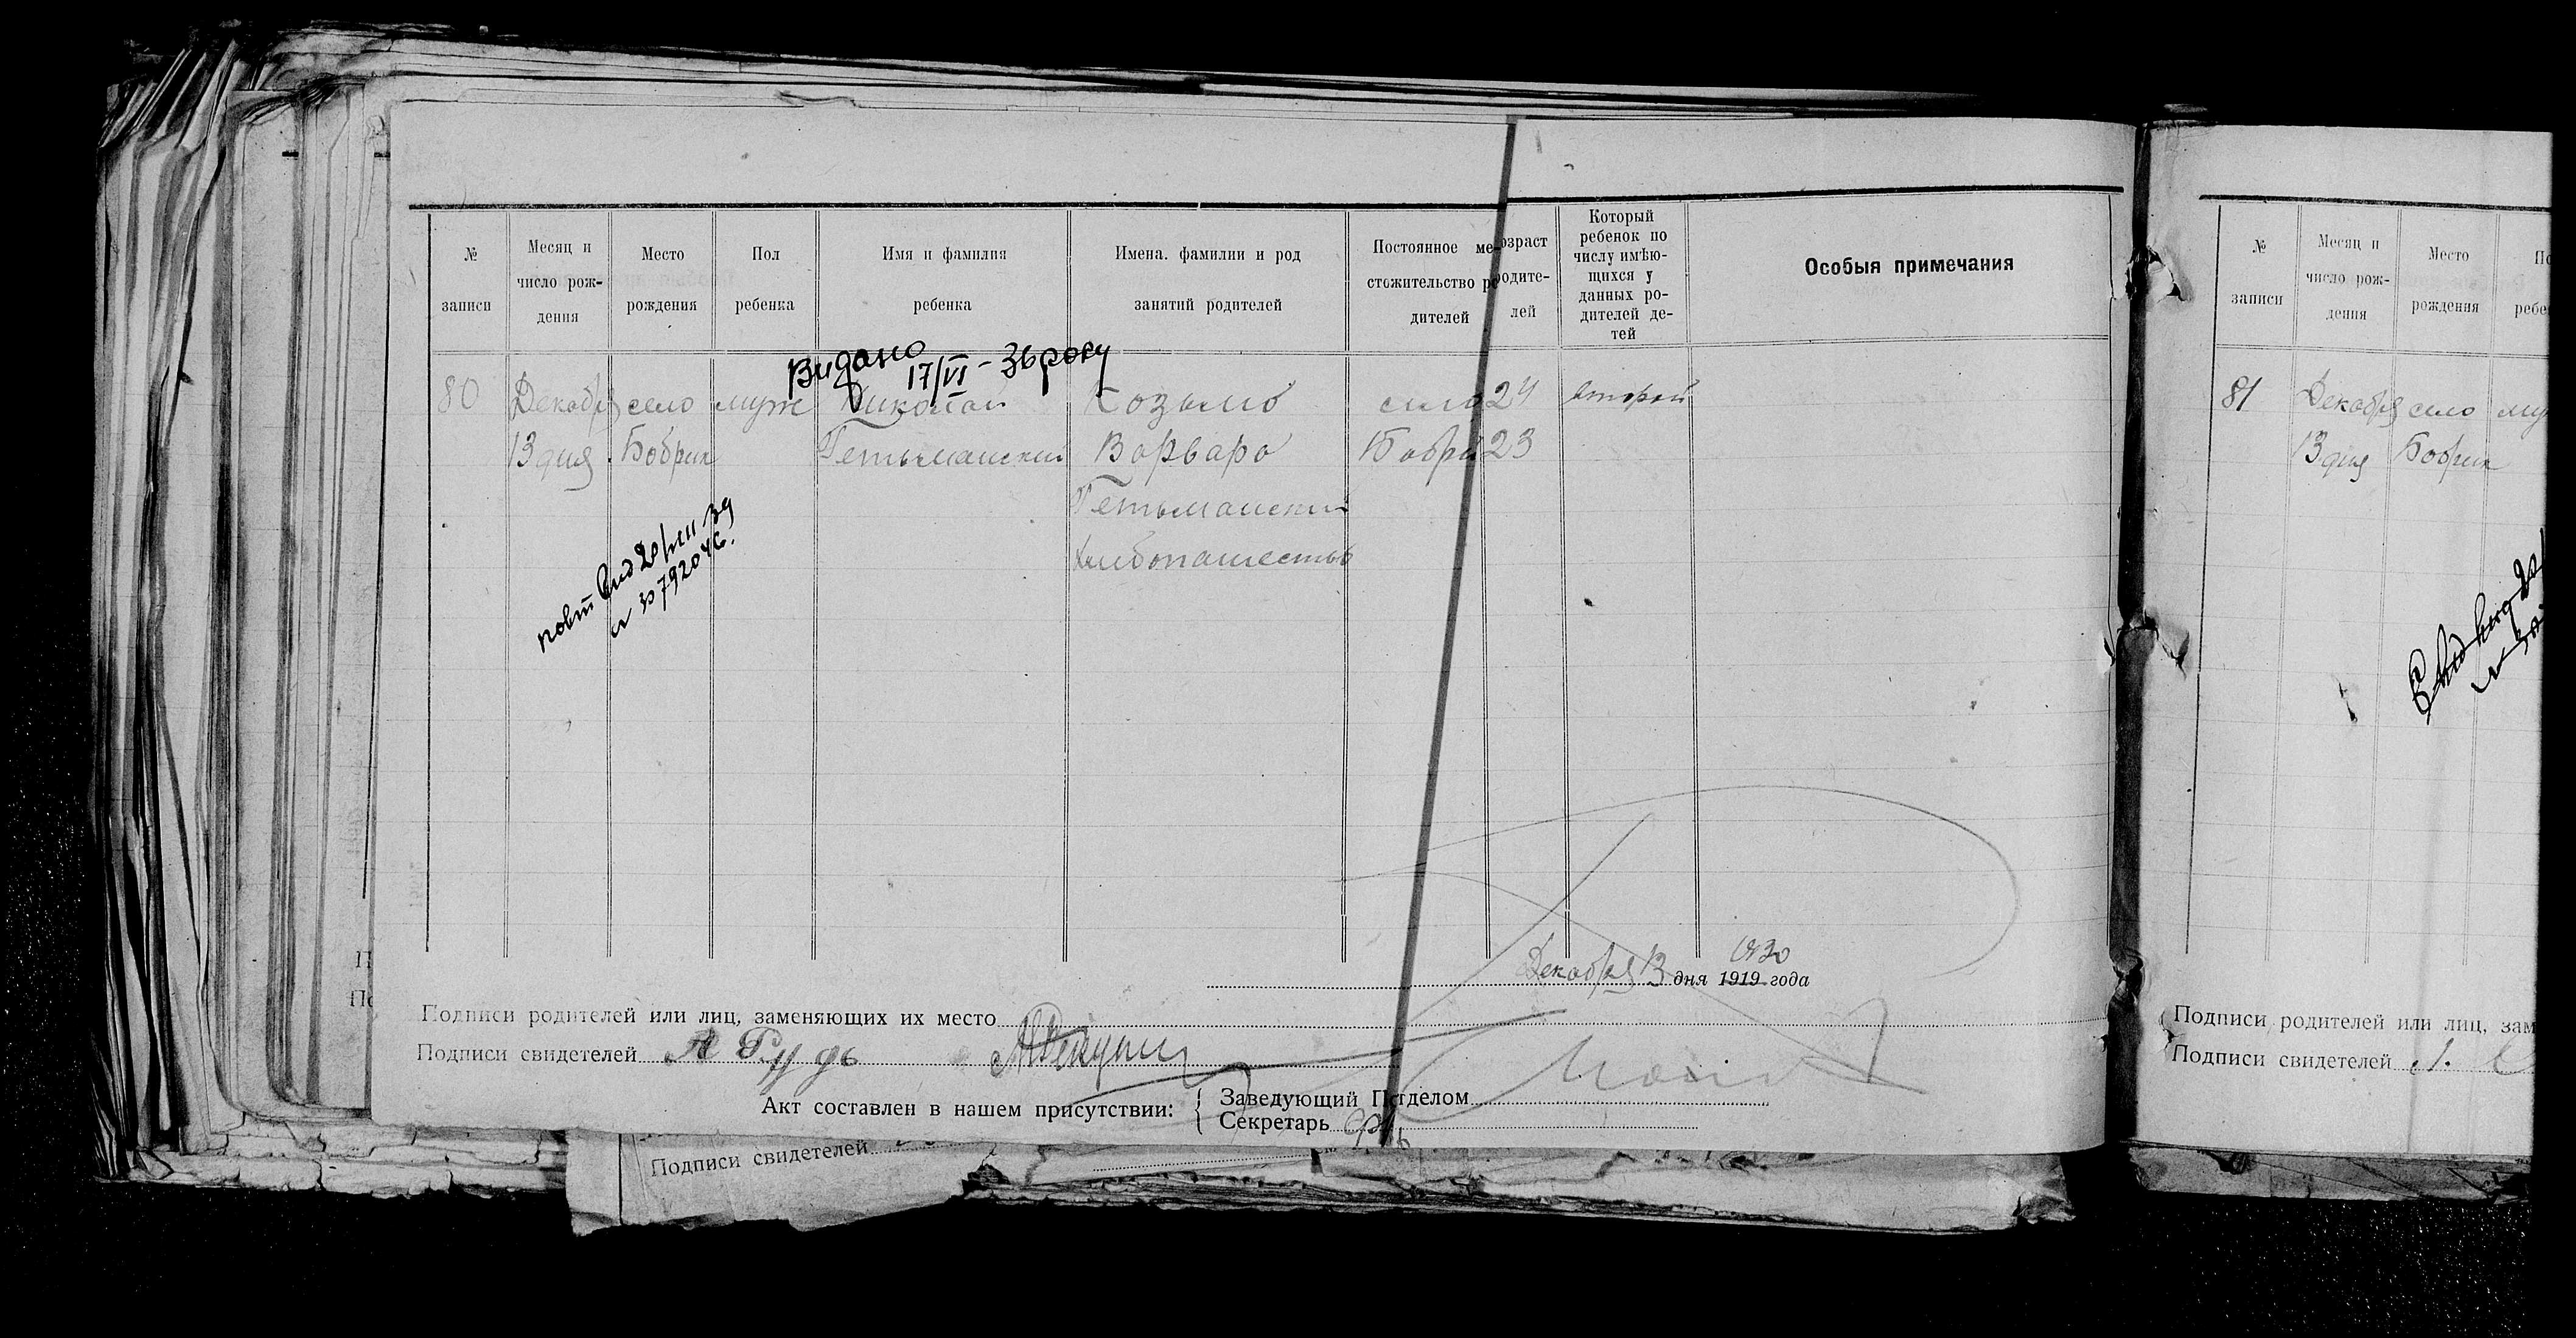 №
записи
Месяц и
число рож-
дения
Место
рождения
Пол
ребенка
Имя и фамилия
ребенка
Имена. фамилии и род
занятий родителей
Постоянное ме-
стожительство ро
дителей
озраст
родите-
лей
Который
ребенок по
числу имѣю-
щихся у
данных ро-
дителей де-
тей
Особыя примечания
Видано
17/VI - 36 року
80 Декабря село муж Николай Козьмо село 24 второй
13 дня Бобрик Гетьманский Ворваро Бобри 23
Гетьмански
Хлибопашество
повт
№
Декабря 13 дня 1919 года
Подписи родителей или лиц, заменяющих их место
Подписи свидетелей А Рудь
Акт составлен в нашем присутствии:
Заведующий П тделом
Секретарь
Подписи свидетелей
№
записи
Месяц и
число рож-
дения
Место
рождения
По
ребе
81 Декабря село му
13 дня Бобрик
Подписи родителей или лиц, зам
Подписи свидетелей